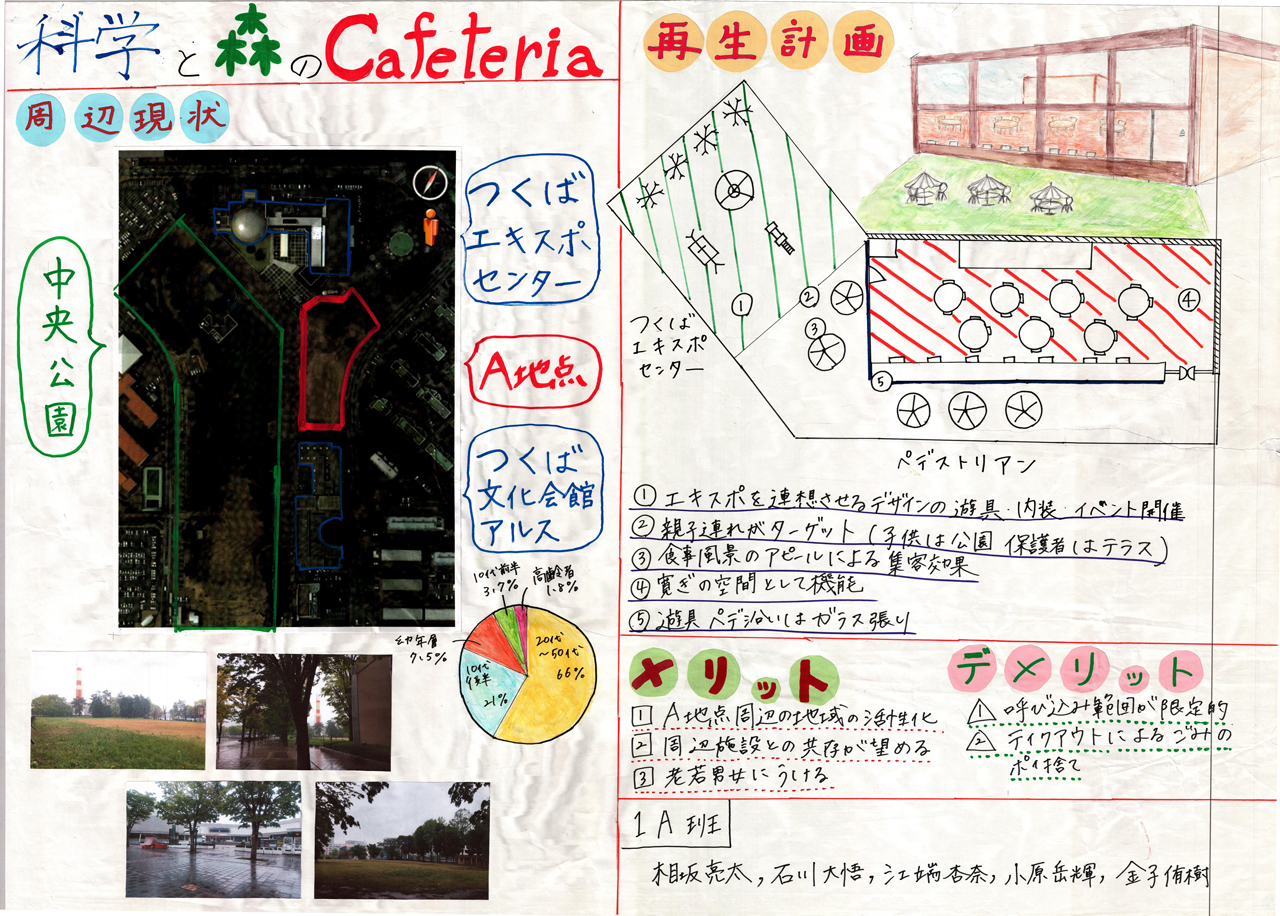 科学と森のCafeteria
周辺現状
中央公園
つくば
エキスポ
センター
A地点
つくば
文化会館
アルス
10代前半
3.7%
高齢者
1.8%
幼年層
7.5%
20代
～50代
66%
10代
後半
21%
再生計画
つくば
エキスポ
センター
①
②
③
④
⑤
ペデストリアン
① エキスポを連想させるデザインの遊具・内装・イベント開催
② 親子連れがターゲット(子供は公園 保護者はテラス)
③ 食事風景のアピールによる集客効果
④ 寛ぎの空間として機能
⑤ 遊具 ペデ沿いはガラス張り
メリット
1 A地点周辺の地域の活性化
2 周辺施設との共存が望める
3 老若男女にうける
デメリット
1 呼び込み範囲が限定的
2 テイクアウトによるごみの
ポイ捨て
1A班
相坂亮太,石川大悟,江端杏奈,小原岳輝,金子侑樹